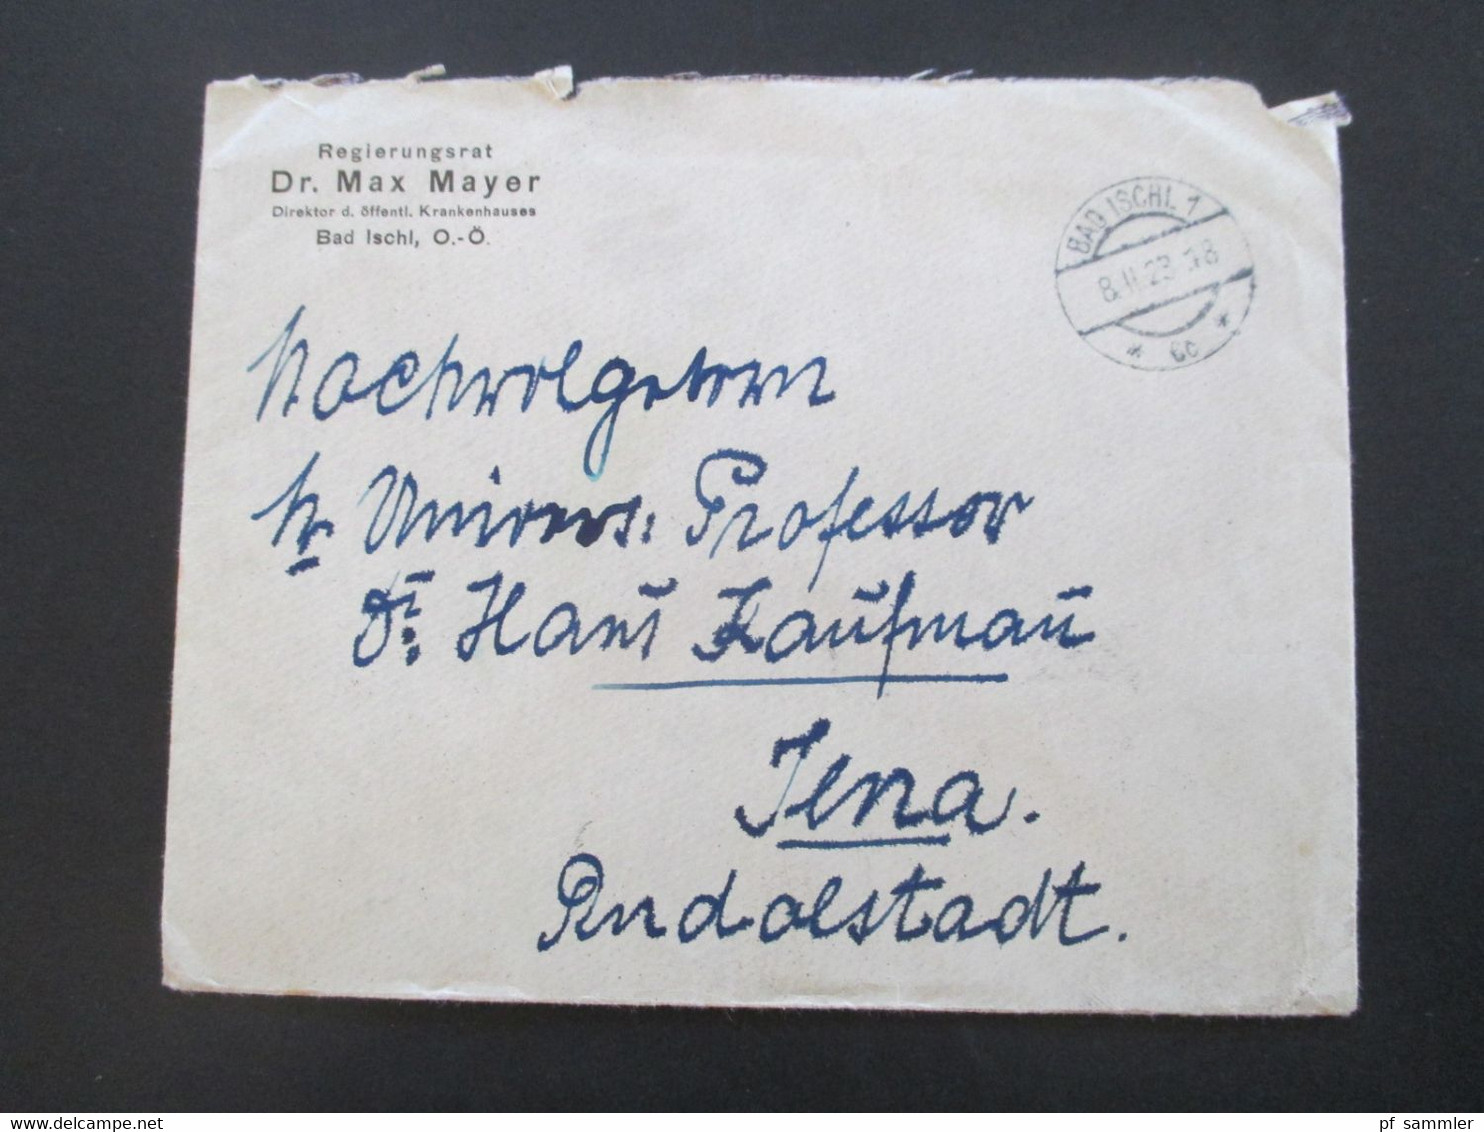 Regierungsrat
Dr. Max Mayer
Direktor d. öffentl. Krankenhauses
Bad Ischl, O.-Ö.
BAD ISCHL 1
8.II.23
* 6c *
Hochwolgeborn
Hr Univers: Professor
Dr. Hans Kaufmań
Jena.
Rudolstadt.
delcampe.net
pf_sammler